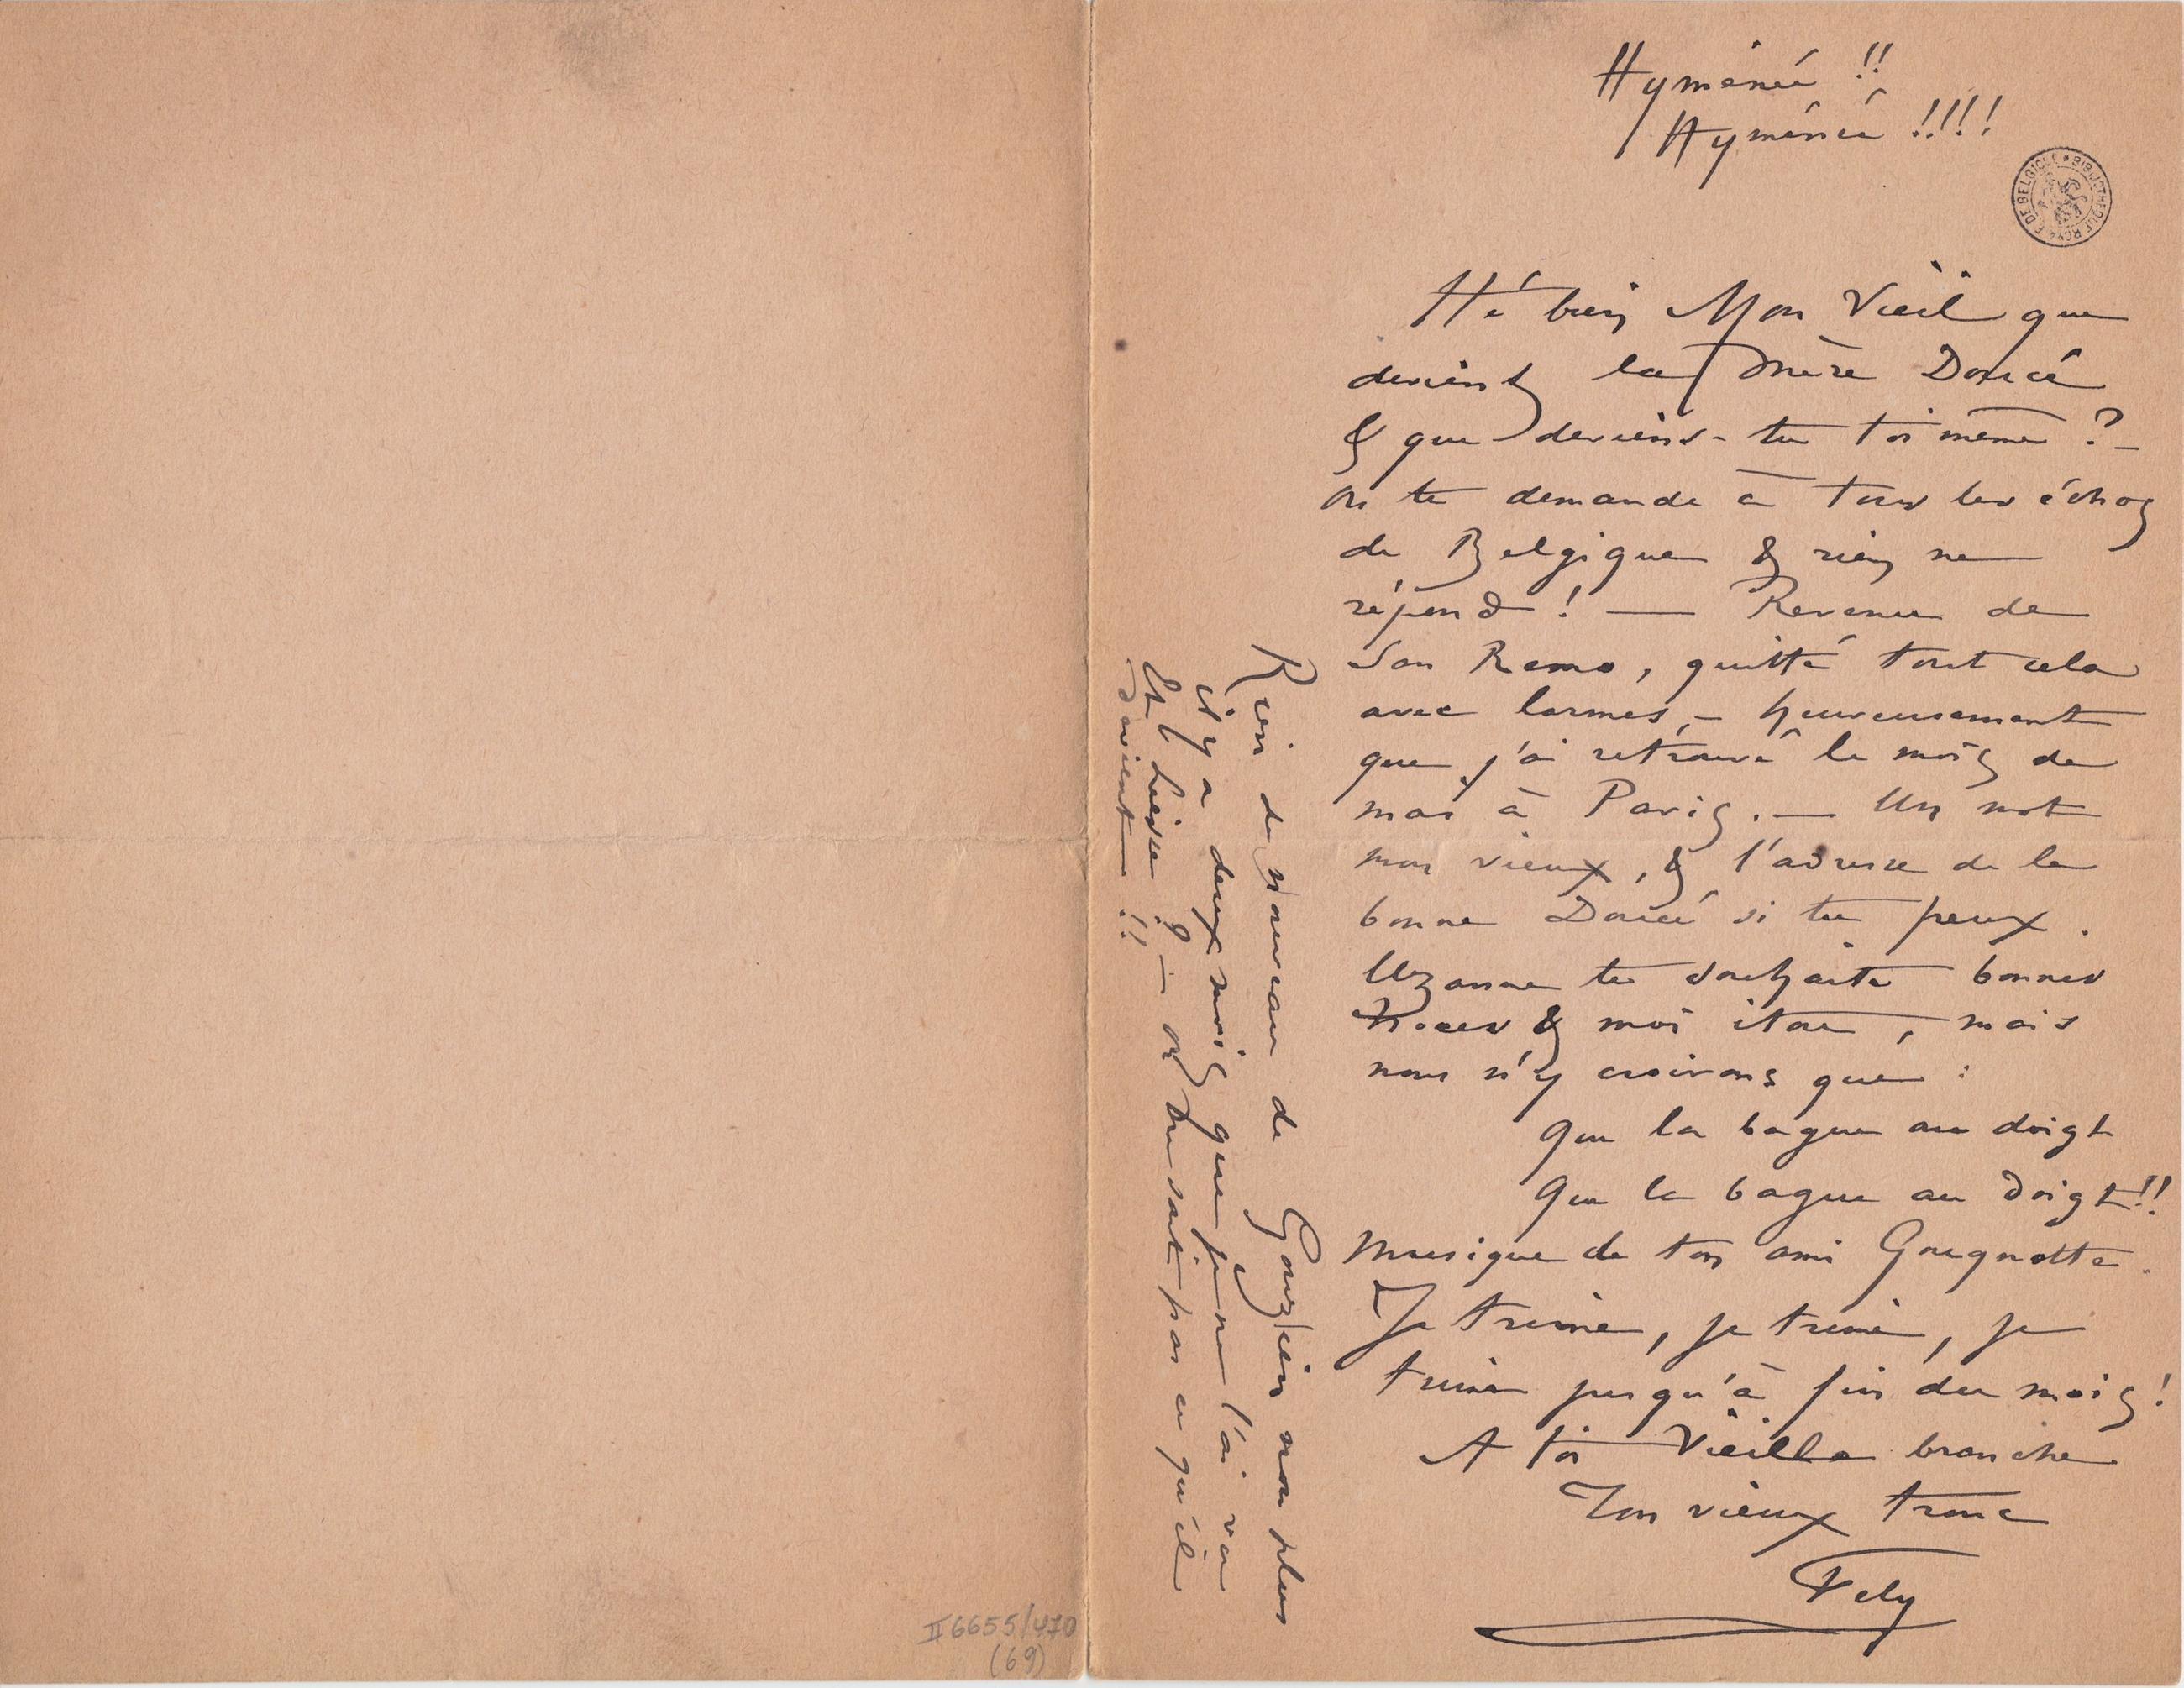 Hyménée !!
Hyménée !!!!
BIBLIOTHEQUE ROYALE DE BELGIQUE
Hé bien Mon Vieil que
devient la Mère Doucé
& que deviens-tu toi même ? –
On te demande à tous les échos
de Belgique & rien ne
répond ! — Revenu de
San Remo, quitté tout cela
avec larmes, – heureusement
que j'ai retrouvé le mois de
mai à Paris. — Un mot
mon vieux, & l'adresse de la
bonne Doucé si tu peux.
Uzanne te souhaite bonnes
Noces & moi itou, mais
nous n'y croirons que :
Que la bague au doigt
Que la bague au doigt !!
Musique de ton ami Gougnotte.
Je trime, je trime, je
trime jusqu'à fin du mois !
A toi Vieille branche
Ton vieux tronc
Fely
Rien de nouveau de Gouzien non plus
il y a deux mois que je ne l'ai vu
Et Liesse ? – on ne sait pas ce qu'il
devient !!
II 6655/470
(69)